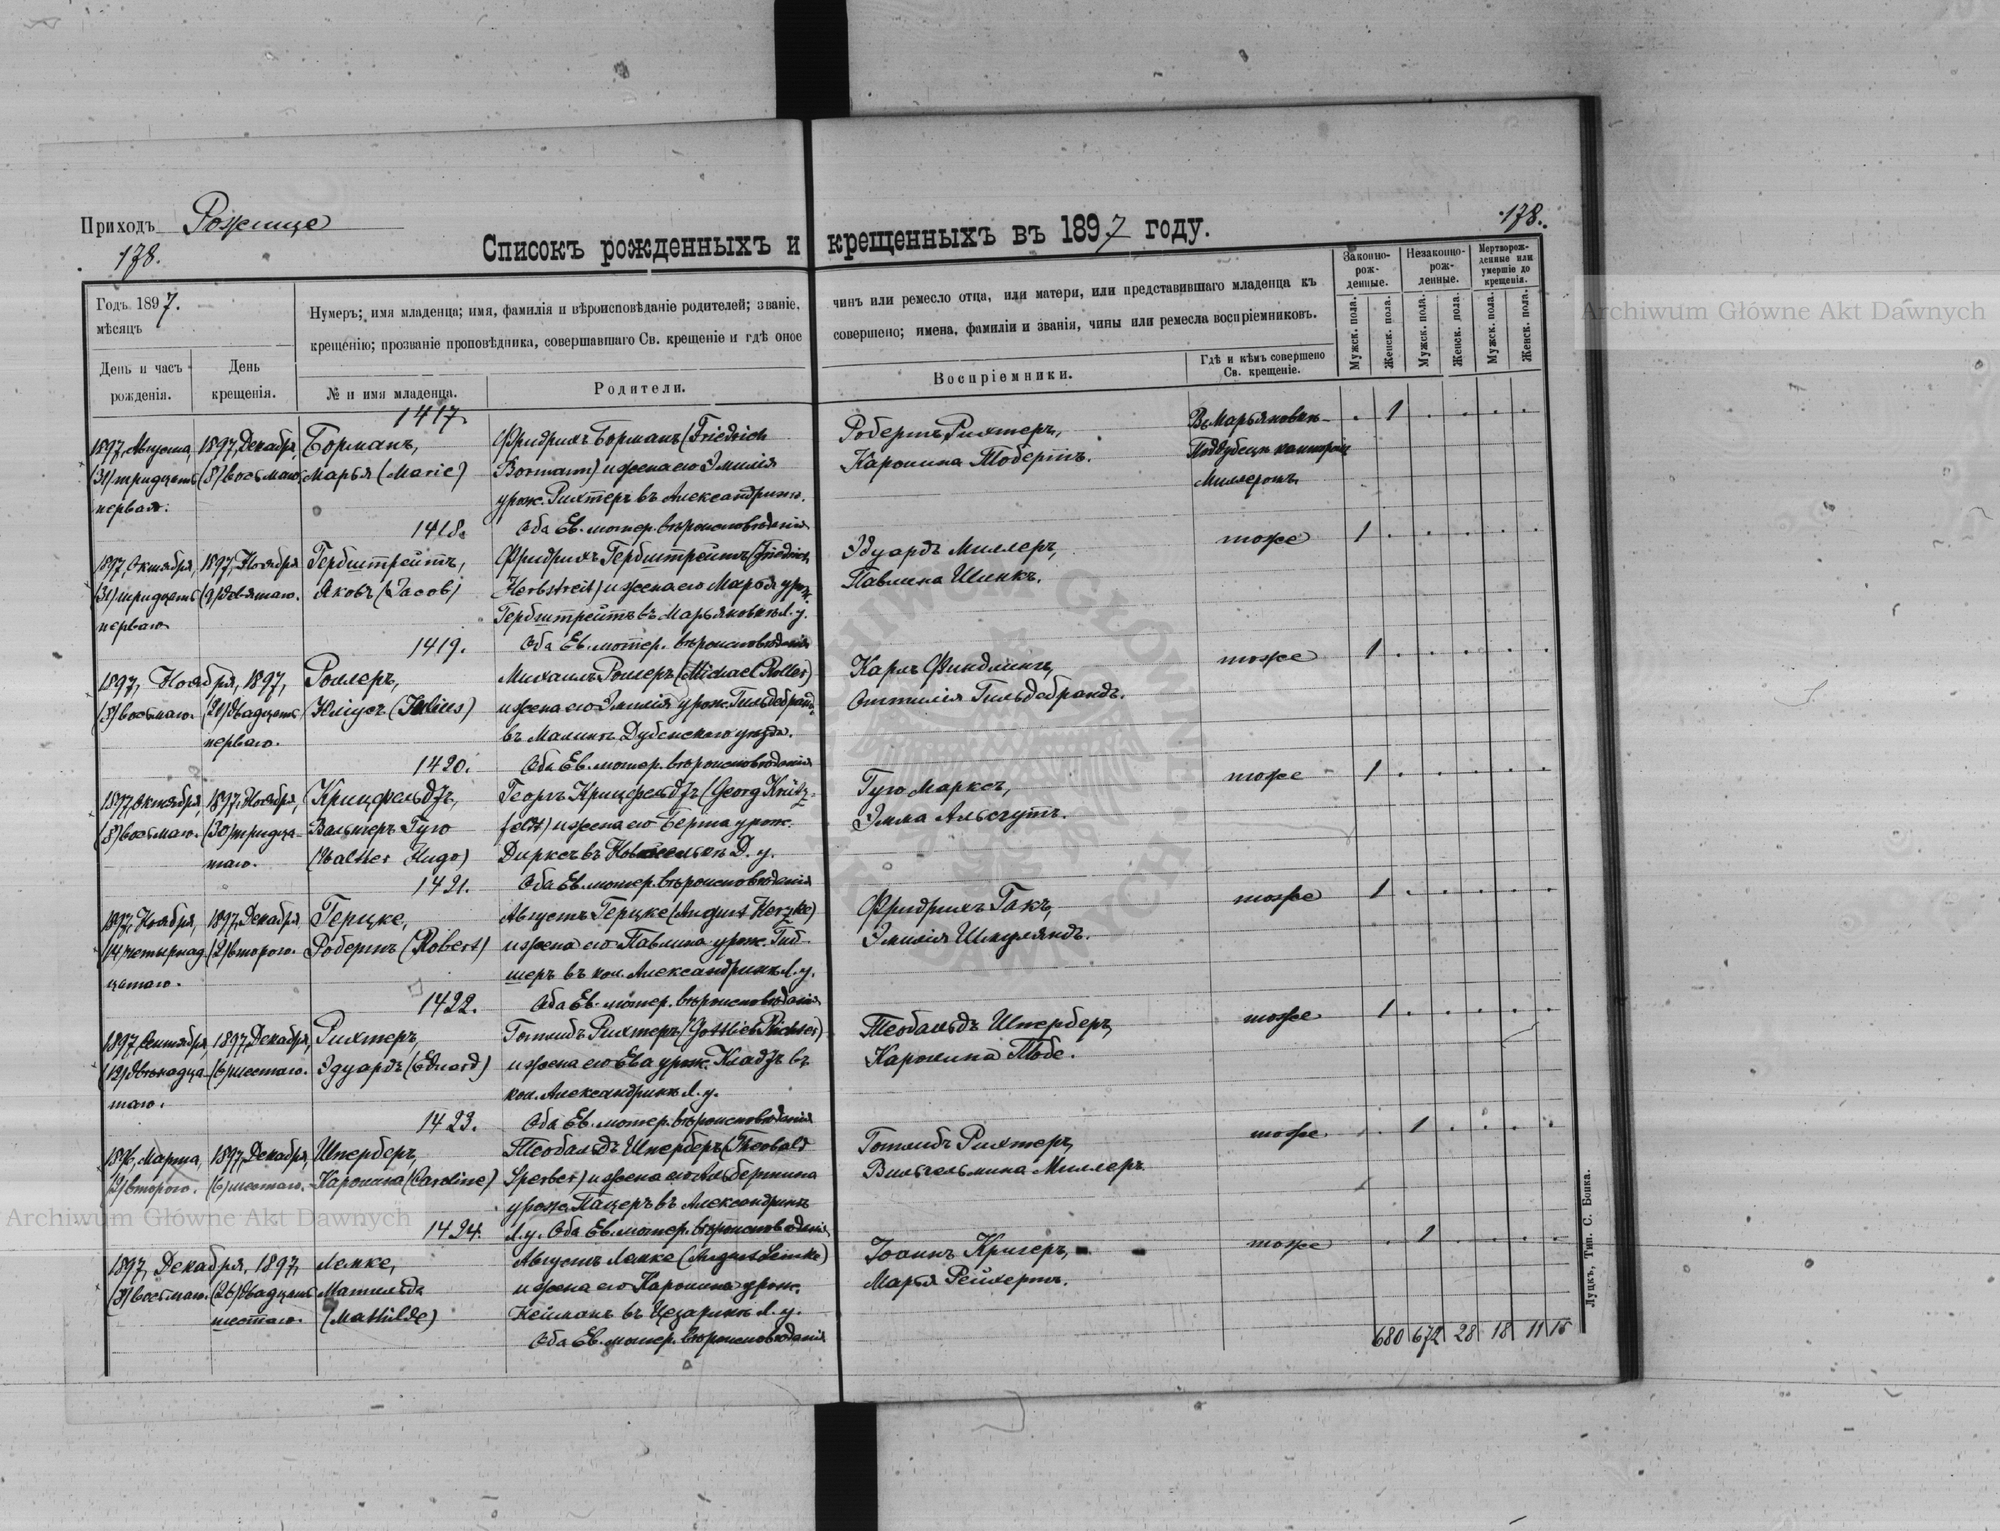 Приходъ Рожище
178.
178.
Списокъ рожденныхъ и крещенныхъ въ 1897 году.
Годъ 1897.
мѣсяцъ
День и часъ рожденія.
День крещенія.
Нумеръ; имя младенца; имя, фамилія и вѣроисповѣданіе родителей; званіе, чинъ или ремесло отца, или матери, или представившаго младенца къ
крещенію; прозваніе проповѣдника, совершавшаго Св. крещеніе и гдѣ оное совершено; имена, фамиліи и званія, чины или ремесла воспріемниковъ.
№ и имя младенца.
Родители.
Воспріемники.
Гдѣ и кѣмъ совершено Св. крещеніе.
Законно-рож-денные.
Незаконно-рож-денные.
Мертворож-денные или умершіе до крещенія.
Мужск. пола.
Женск. пола.
Мужск. пола.
Женск. пола.
Мужск. пола.
Женск. пола.
1417.
1897, Августа, (31) тридцать перваго.
1897, Декабря, (8) восьмаго.
Борманъ,
Марья (Marie)
Фридрихъ Борманъ (Friedrich
Bormann) и жена его Эмилія
урож. Рихтеръ въ Александрин.
Оба Ев. лютер. вѣроисповѣданія
Робертъ Рихтеръ,
Каролина Тобертъ.
Въ Марьяновкѣ
Миллеромъ
1
1418.
1897, Октября, (31) тридцать перваго
1897, Ноября (9) девятаго.
Гербштрейтъ,
Яковъ (Jacob)
Фридрихъ Гербштрейтъ (Friedrich
Herbstreit) и жена его Марья урож.
Гербштрейтъ въ Марьяновкѣ Л. у.
Оба Ев. лютер. вѣроисповѣданія
Эдуардъ Миллеръ,
Павлина Шинкъ.
тоже
1
1419.
1897, Ноября, 1897,
(8) восьмаго. (21) двадцать перваго.
Роллеръ,
Юліусъ (Julius)
Михаилъ Роллеръ (Michael Roller)
и жена его Эмилія урож. Гильдебранд,
въ Малинѣ Дубенскаго уѣзда.
Оба Ев. лютер. вѣроисповѣданія
Карлъ Финдлингъ,
Оттилія Гильдебрандъ.
тоже
1
1420.
1897, Октября, (8) восьмаго.
1897, Ноября, (30) тридцатаго.
Крицфельдъ,
Вальтеръ Гуго
(Walther Hugo)
Георгъ Крицфельдъ (Georg Kritz-
feldt) и жена его Берта урож.
Дирксъ въ Новоселкѣ Д. у.
Оба Ев. лютер. вѣроисповѣданія
Гуго Марксъ,
Эмма Альсгутъ.
тоже
1
1421.
1897, Ноября, (14) четырнадцатаго.
1897, Декабря, (2) второго.
Герцке,
Робертъ (Robert)
Августъ Герцке (August Herzke)
и жена его Павлина урож. Гиб-
неръ въ кол. Александринѣ Л. у.
Оба Ев. лютер. вѣроисповѣданія
Фридрихъ Гакъ,
Эмилія Шмуляндъ.
тоже
1
1422.
1897, Сентября, (12) двѣнадцатаго.
1897, Декабря, (6) шестаго.
Рихтеръ,
Эдуардъ (Eduard)
Готлибъ Рихтеръ (Gottlieb Richter)
и жена его Ева урож. Кладъ въ
кол. Александринѣ Л. у.
Оба Ев. лютер. вѣроисповѣданія
Теобальдъ Шперберъ,
Каролина Тобе.
тоже
1
1423.
1896, Марта, (2) второго.
1897, Декабря, (6) шестаго.
Шперберъ,
Каролина (Caroline)
Теобальдъ Шперберъ (Theobald
Sperber) и жена его Альбертина
урож. Пацеръ въ Александринѣ
Л. у. Оба Ев. лютер. вѣроисповѣданія
Готлибъ Рихтеръ,
Вильгельмина Миллеръ
тоже.
1
1424.
1897, Декабря, 1897,
(8) восьмаго. (26) двадцать шестаго.
Лемке,
Матильда
(Mathilde)
Августъ Лемке (August Lemke)
и жена его Каролина урож.
Нейманъ въ Цезаринѣ Л. у.
Оба Ев. лютер. вѣроисповѣданія
Іоаннъ Кригеръ,
Марья Рейхертъ.
тоже
1
680 672 28 18 11 15
Луцкъ, Тип. С. Бонка.
Archiwum Główne Akt Dawnych
Archiwum Główne Akt Dawnych
ARCHIWUM GŁÓWNE AKT DAWNYCH